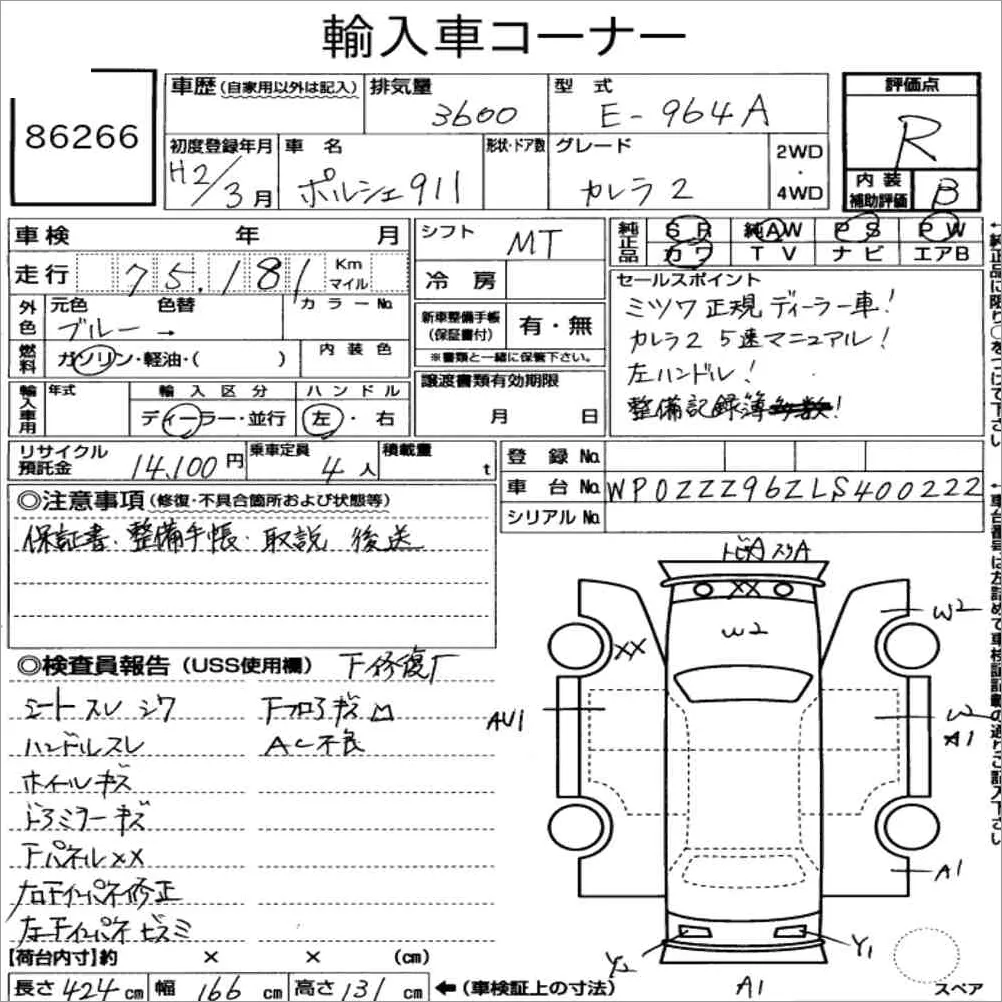 輸入車コーナー
86266
車歴(自家用以外は記入) 排気量 3600 型式 E-964A 評価点 R
初度登録年月 H2/3月 車名 ポルシェ911 形状・ドア数 グレード カレラ2 2WD・4WD 内装補助評価 B
車検 年 月 シフト MT 純正品 SR 純AW PS PW
カワ TV ナビ エアB
走行 75,181 Km マイル 冷房
セールスポイント
外色 元色 ブルー→ 色替 カラーNo. 新車整備手帳(保証書付) 有・無
ミツワ正規ディーラー車!
カレラ2 5速マニュアル!
左ハンドル!
整備記録簿 !
燃料 ガソリン・軽油・( ) 内装色 ※書類と一緒に保管下さい。
輸入車用 年式 輸入区分 ディーラー・並行 ハンドル 左・右 譲渡書類有効期限 月 日
リサイクル預託金 14,100円 乗車定員 4人 積載量 t
登録No.
車台No. WP0ZZZ96ZLS400222
シリアルNo.
◎注意事項(修復・不具合箇所および状態等)
保証書・整備手帳・取説 後送
◎検査員報告(USS使用欄) F修復歴
シートスレ シワ
ハンドルスレ AC不良
ホイールキズ
ドアミラーキズ
FパネルXX
右Fインパネ修正
左Fインパネ
A
XX
W2
W2
XX
AU1
W
A1
A1
Y2
Y1
A1
スペア
【荷台内寸】約 × × (cm)
長さ 424 cm 幅 166 cm 高さ 131 cm ←(車検証上の寸法)
←純正品に限り○をつけて下さい
←車台番号は左詰めで車検証記載の通りご記入下さい